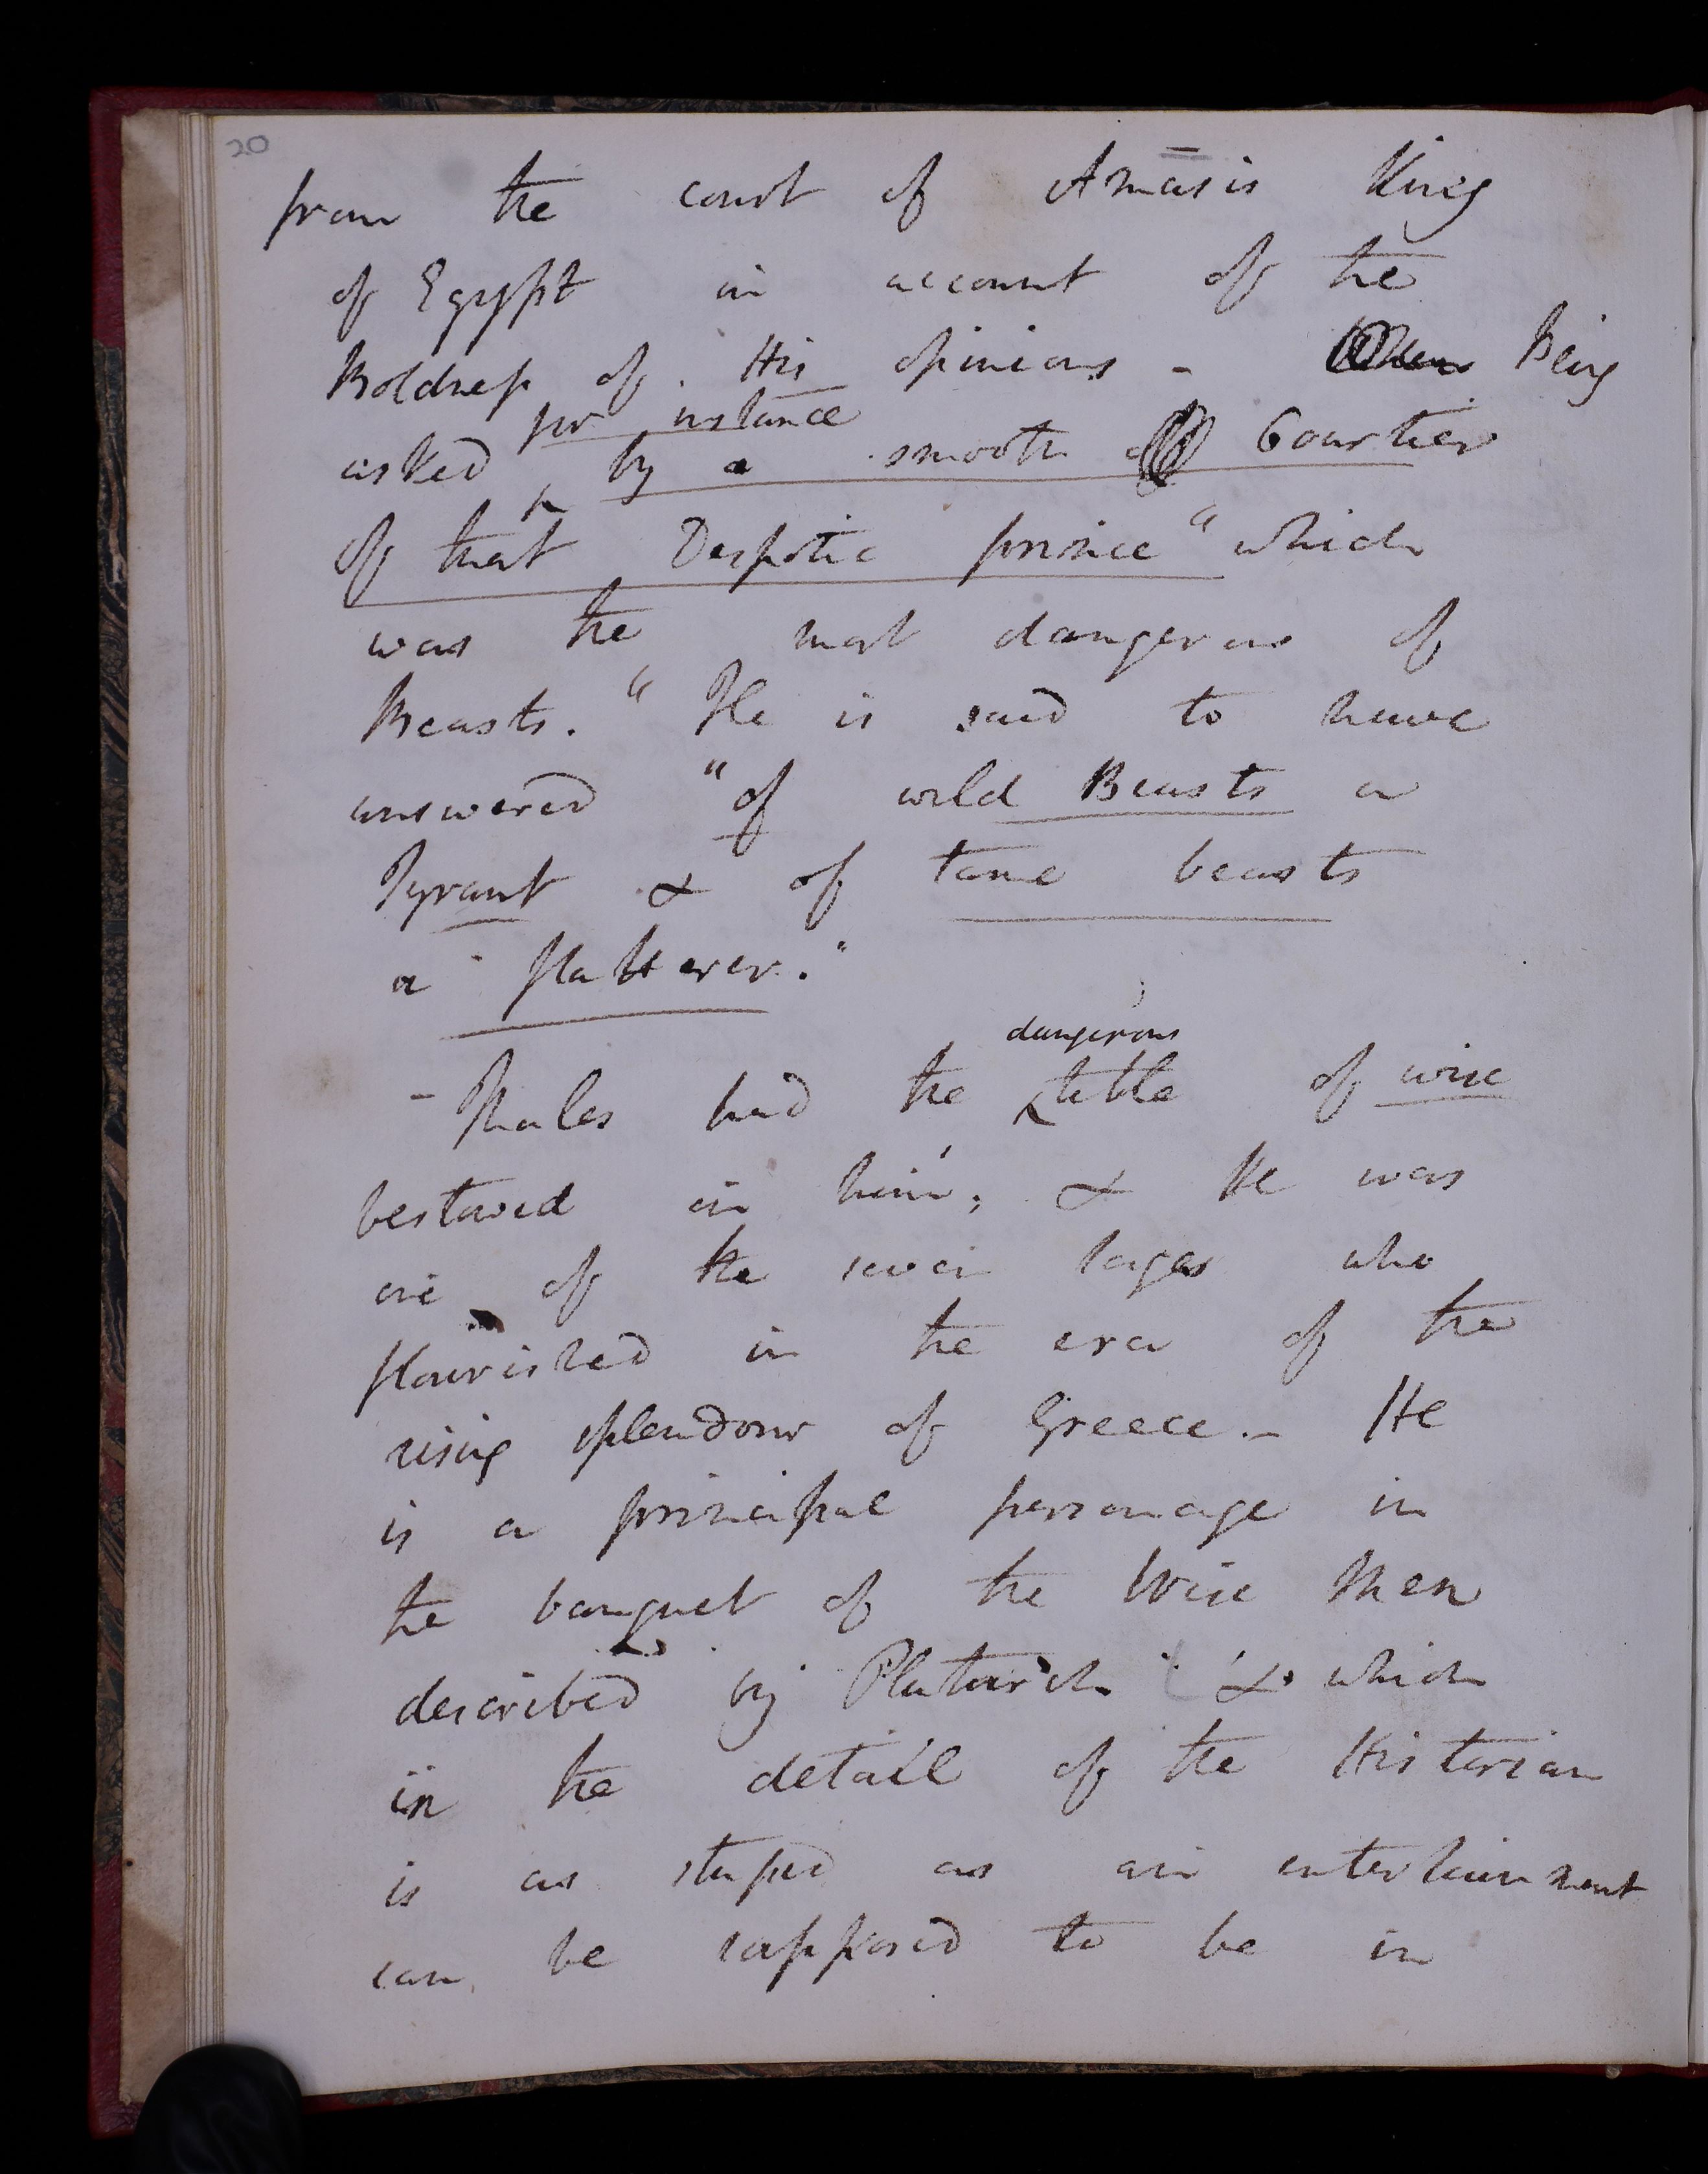 20
from the court of Amasis King
of Egypt on account of the
Boldness of His opinions - Being
for instance
asked by a smooth Courtier
of that Despotic prince "which
was the most dangerous of
Beasts." He is said to have
answered "of wild Beasts a
Tyrant & of tame beasts
a flatterer."
dangerous
- Thales had the title of wise
bestowed on him; & He was
one of the seven sages who
flourished in the era of the
rising splendour of Greece. - He
is a principal personage in
the banquet of the Wise Men
described by Plutarch & which
in the detail of the Historian
is as stupid as an entertainment
can be supposed to be in